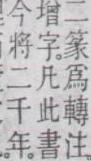 二篆爲轉注
增字凡此書
今將二千年